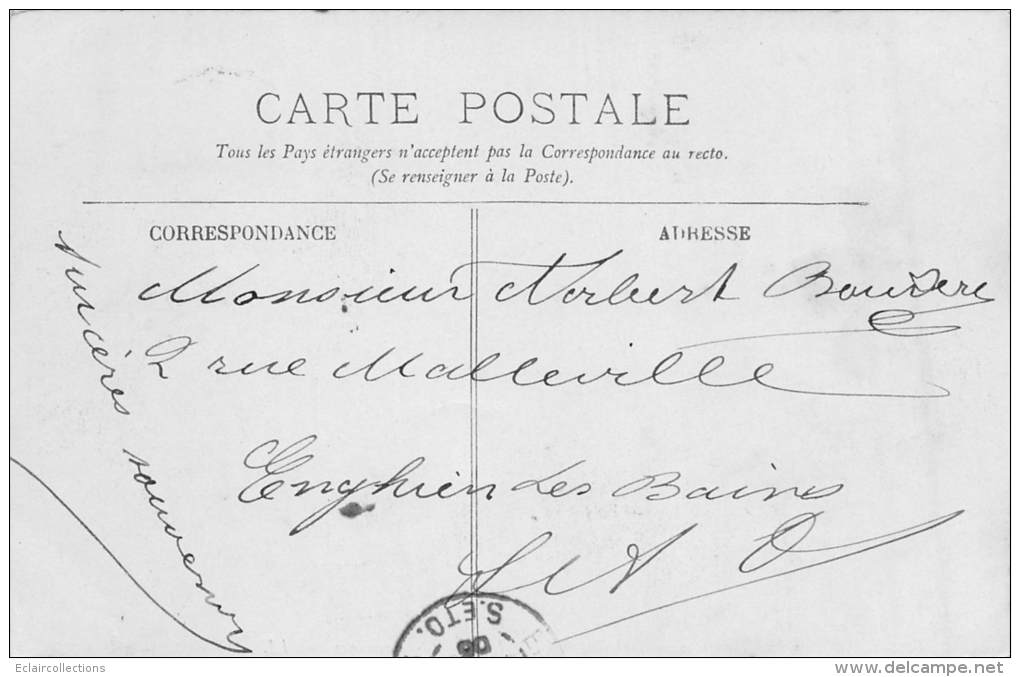 CARTE POSTALE
Tous les Pays étrangers n'acceptent pas la Correspondance au recto.
(Se renseigner à la Poste).
CORRESPONDANCE
ADRESSE
Monsieur Norbert
2 rue Malleville
Enghien Les Bains
S et O
Sincères souvenirs
S.ETO.
Eclaircollections
www.delcampe.net